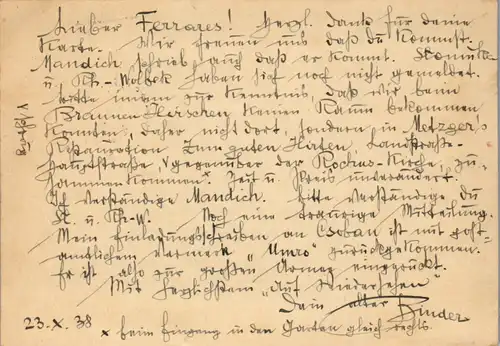 Lieber Ferrares! Herzl. Dank für deine
Karte. Wir freuen uns daß du kommst.
Mandich schrieb auch daß er kommt.
u. Kh.-Wolbek haben sich noch nicht gemeldet.
bitte zur Kenntnis, daß wir beim
Braunen Hirschen keinen Raum bekommen
konnten, daher nicht dort, sondern in Metzger's
Restauration Zum guten Hirten, Landstraße-
Hauptstraße, gegenüber der Rochus-Kirche, zu-
sammenkommen. x Zeit u. Kreis unverändert.
Ich verständige Mandich. bitte verständige du
St. u. Kh-W. Noch eine traurige Mitteilung.
Mein Einladungsschreiben an Csoban ist mit post-
amtlichem Vermerk "Umro" zurückgekommen.
Er ist also zur großen Armee eingerückt.
Mit herzlichstem "Auf Wiedersehen"
Dein alter Binder
23.X.38 x beim Eingang in den Garten gleich rechts.